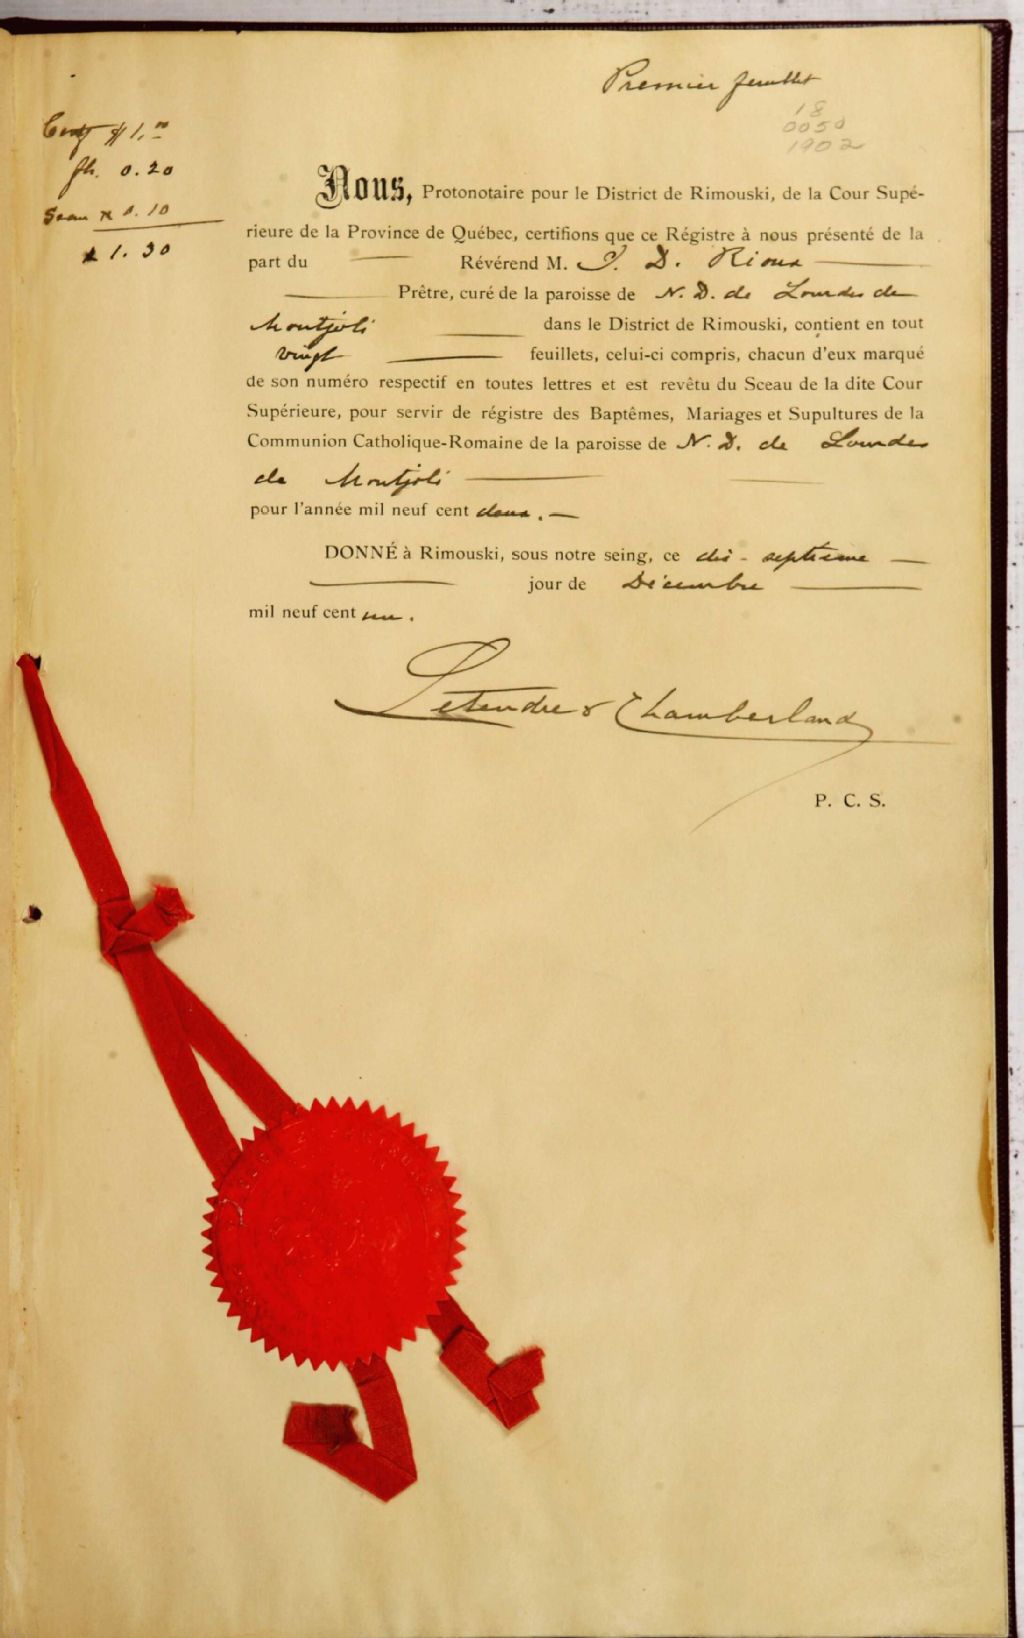 Premier feuillet
18
0050
1902
Cert $1.00
fh. 0.20
Seau " 0.10
$ 1.30
Nous, Protonotaire pour le District de Rimouski, de la Cour Supé-
rieure de la Province de Québec, certifions que ce Régistre à nous présenté de la
part du Révérend M. J. D. Rioux
Prêtre, curé de la paroisse de N. D. de Lourdes de
Montjoli dans le District de Rimouski, contient en tout
vingt feuillets, celui-ci compris, chacun d'eux marqué
de son numéro respectif en toutes lettres et est revêtu du Sceau de la dite Cour
Supérieure, pour servir de régistre des Baptêmes, Mariages et Supultures de la
Communion Catholique-Romaine de la paroisse de N. D. de Lourdes
de Montjoli
pour l'année mil neuf cent deux.
DONNÉ à Rimouski, sous notre seing, ce dix-septième
jour de Décembre
mil neuf cent un.
Letendre & Chamberland
P. C. S.